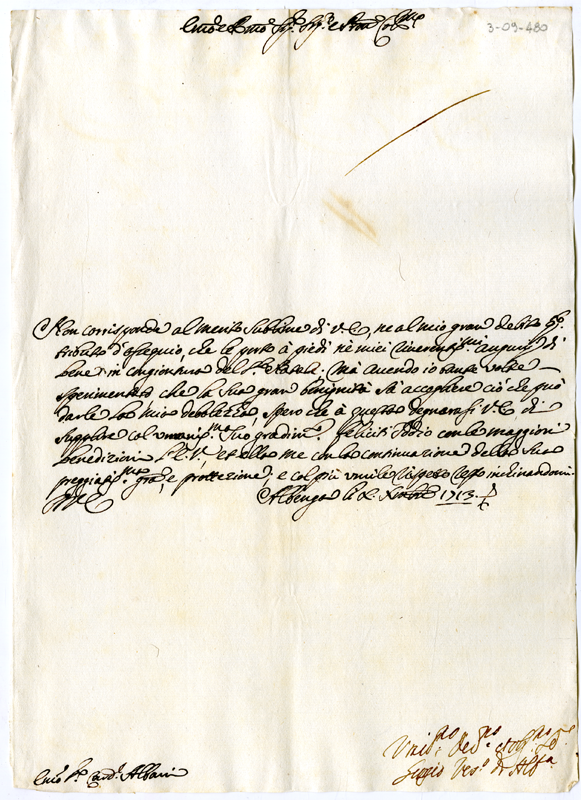 Em.o e R.mo Sig.r Sig.r e Pron Col.mo
3-09-480
Non corrisponde al merito sublime di V.E., ne al mio gran debito q.o
tributo d'ossequio, che le porto à piedi nè miei riverentiss.mi augurij di
bene in congiontura del S.to Natale. Mà avendo io tante volte
sperimentato che la sua gran benignità sà accogliere ciò che può
darle la mia debolezza, spero che à questo degnarassi V.E. di
supplire col umaniss.mo suo gradim.to. Feliciti Iddio con le maggiori
benedizioni l'E.V., et ella me con la continuazione della sua
preggiatiss.ma gra, e protezione, e col più umile rispetto resto inchinandomi
Albenga li X.bre 1713.
Umil.mo Dev.mo et Obl.mo Se
Vesc.o d'Alb.a
Em.o Sr. Card.l Albani